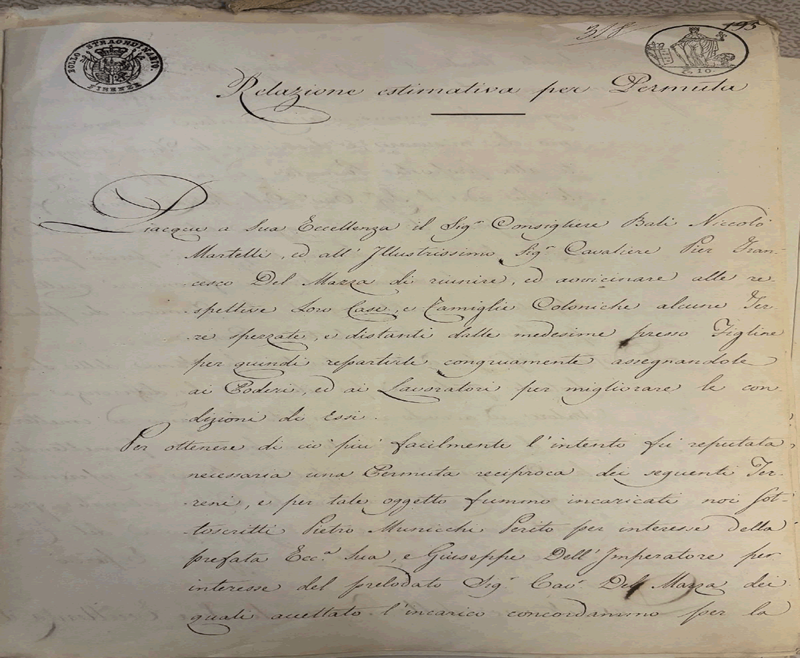 318
193
BOLLO STRAORDINARIO
FIRENZE
C. 10.
Relazione estimativa per Permuta
Piacque a Sua Eccellenza il Sig.r Consigliere Balì Niccolò
Martelli, ed all' Illustrissimo Sig.r Cavaliere Pier Fran-
cesco Del Mazza di riunire, ed avvicinare alle re-
spettive Loro Case, e Famiglie Coloniche alcune Ter-
re spezzate, e distanti dalle medesime presso Figline
per quindi repartirle congruamente assegnandole
ai Poderi, ed ai Lavoratori per migliorare le con
dizioni di Essi.
Per ottenere di ciò più facilmente l'intento fù reputata
necessaria una Permuta reciproca dei seguenti Ter-
reni, e per tale oggetto fummo incaricati noi Sot-
toscritti Pietro Municchi Perito per interesse della
prefata Ecc.a Sua, e Giuseppe Dell'Imperatore per
interesse del prelodato Sig.r Cav.e Del Mazza dei
quali accettato l'incarico concordammo per la